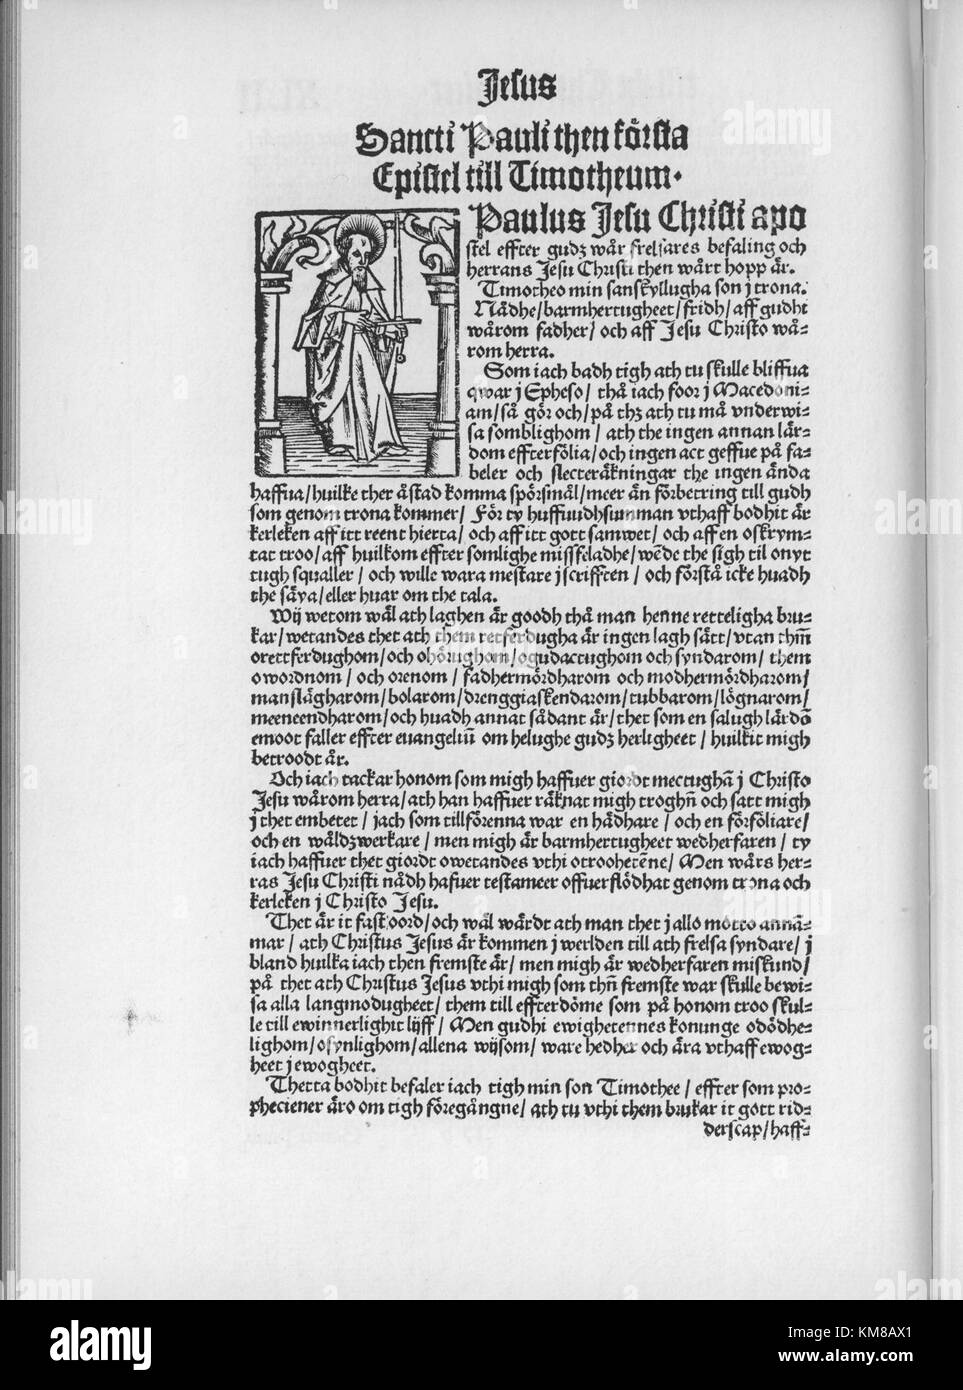 Jesus
Sancti Pauli then första
Epistel till Timotheum.
Paulus Jesu Christi apo
stel effter gudz wår frelsares befaling och
herrans Jesu Christi then wårt hopp är.
Timotheo min sanskyllugha son j trona.
Nådhe/barmhertugheet/fridh/aff gudhi
wårom fadher/ och aff Jesu Christo wå⸗
rom herra.
Som iach badh tigh ath tu skulle bliffua
qwar j Epheso/ thå iach foor j Macedoni⸗
am/så gör och/på thz ath tu må vnderwi⸗
sa somblighom/ ath the ingen annan lär⸗
dom effterfölia/och ingen act geffue på fa⸗
beler och slecteräkningar the ingen ända
haffua/huilke ther åstad komma spörsmål/meer än förbetring till gudh
som genom trona kommer/ För ty huffuudhsumman vthaff bodhit är
kerleken aff itt reent hierta/ och aff itt gott samwet/ och aff en oskrym⸗
tat troo/aff huilkom effter somlighe missfeladhe/wẽde the sigh til onyt
tugh squaller/ och wille wara mestare j scrifften/ och förstå icke huadh
the säya/eller huar om the tala.
Wij wetom wäl ath laghen är goodh thå man henne retteligha bru⸗
kar/wetandes thet ath them retferdugha är ingen lagh sätt/vtan thm̃
orettferdughom/och ohörughom/ogudactughom och syndarom/ them
owordnom/ och orenom/ fadhermördharom och modhermördharom/
manslägharom/bolarom/drenggiaskendarom/tubbarom/lögnarom/
meeneendharom/och huadh annat sådant är/thet som en salugh lärdõ
emoot faller effter euangeliũ om helughe gudz herligheet/ huilkit migh
betroodt är.
Och iach tackar honom som migh haffuer giordt mectughã j Christo
Jesu wårom herra/ath han haffuer räknat migh troghñ och satt migh
j thet embetet/ jach som tillförenna war en hädhare/ och en förföliare/
och en wåldzwerkare/ men migh är barmhertugheet wedherfaren/ ty
iach haffuer thet giordt owetandes vthi otroohetẽne/ Men wårs her⸗
ras Jesu Christi nådh hafuer testameer offuerflödhat genom trona och
kerleken j Christo Jesu.
Thet är it fast oord/och wäl wärdt ath man thet j allo motto annã⸗
mar/ ath Christus Jesus är kommen j werlden till ath frelsa syndare/ j
bland huilka iach then fremste är/ men migh är wedherfaren miskund/
på thet ath Christus Jesus vthi migh som thñ fremste war skulle bewi⸗
sa alla langmodugheet/ them till effterdöme som på honom troo skul⸗
le till ewinnerlighit lijff/ Men gudhi ewighetennes konunge odödhe⸗
lighom/osynlighom/allena wijsom/ ware hedher och ära vthaff ewog⸗
heet j ewogheet.
Thetta bodhit befaler iach tigh min son Timothee/ effter som pro⸗
pheciener äro om tigh föregångne/ ath tu vthi them brukar it gott rid⸗
derscap/haff⸗
alamy
Image ID: KM8AX1
www.alamy.com